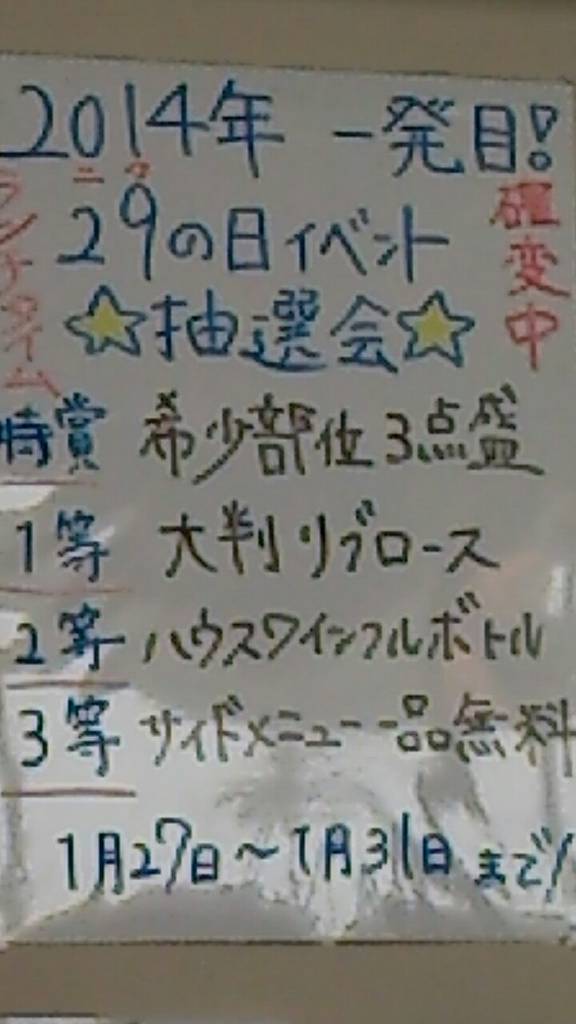 2014年 一発目!
ニク
29の日イベント
☆抽選会☆
ランチタイム
確変中
特賞 希少部位3点盛
1等 大判リブロース
2等 ハウスワインフルボトル
3等 サイドメニュー一品無料
1月27日～1月31日まで!